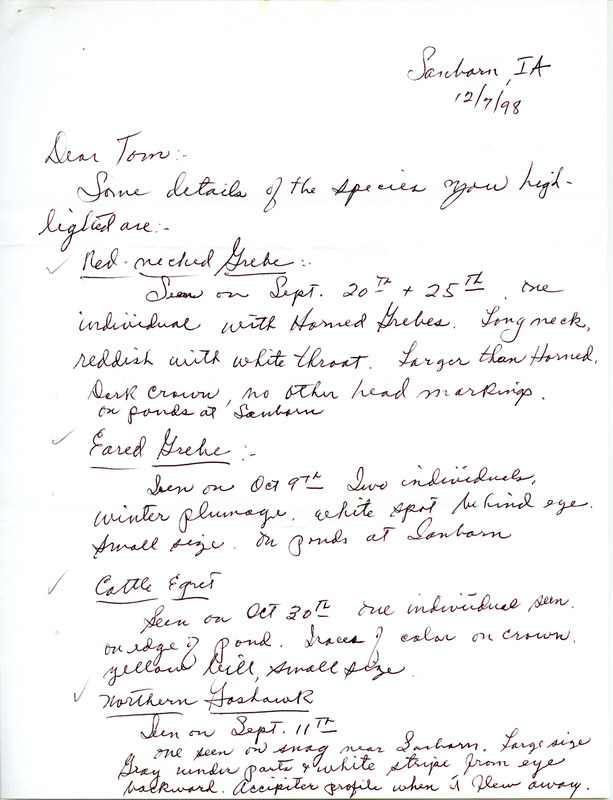 Sanborn, IA
12/7/98
Dear Tom:-
Some details of the species you high-
lighted are:-
✓ Red-necked Grebe:-
Seen on Sept. 20TH + 25TH, one
individual with Horned Grebes. Long neck,
reddish with white throat. Larger than Horned.
Dark crown, no other head markings.
on ponds at Sanborn
✓ Eared Grebe:-
Seen on Oct 9TH Two individuals,
winter plumage. White spot behind eye.
Small size. On ponds at Sanborn
✓ Cattle Egret
Seen on Oct 30TH one individual seen.
on edge of pond. Traces of color on crown.
yellow bill, small size
✓ Northern Goshawk
Seen on Sept. 11TH
One seen on snag near Sanborn. Large size
Gray under parts & white stripe from eye
backward. Accipiter profile when it flew away.